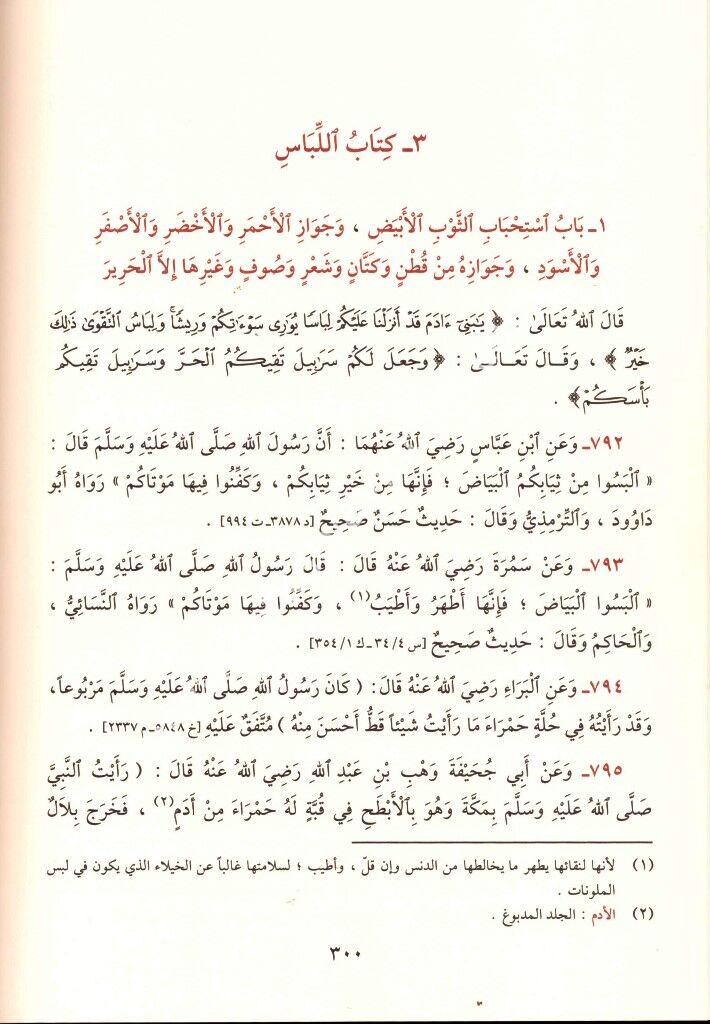 ٣ـ كِتَابُ ٱللِّبَاسِ
١ـ بَابُ ٱسْتِحْبَابِ ٱلثَّوْبِ ٱلْأَبْيَضِ ، وَجَوَازِ ٱلْأَحْمَرِ وَٱلْأَخْضَرِ وَٱلْأَصْفَرِ
وَٱلْأَسْوَدِ ، وَجَوَازِهِ مِنْ قُطْنٍ وَكَتَّانٍ وَشَعْرٍ وَصُوفٍ وَغَيْرِهَا إِلاَّ ٱلْحَرِيرَ
قَالَ ٱللهُ تَعَالَىٰ : ﴿ يَٰبَنِىٓ ءَادَمَ قَدْ أَنزَلْنَا عَلَيْكُمْ لِبَاسًا يُوَٰرِى سَوْءَٰتِكُمْ وَرِيشًا ۖ وَلِبَاسُ ٱلتَّقْوَىٰ ذَٰلِكَ
خَيْرٌ ﴾ ، وَقَالَ تَعَالَىٰ : ﴿ وَجَعَلَ لَكُمْ سَرَٰبِيلَ تَقِيكُمُ ٱلْحَرَّ وَسَرَٰبِيلَ تَقِيكُم
بَأْسَكُمْ ﴾ .
٧٩٢ـ وَعَنِ ٱبْنِ عَبَّاسٍ رَضِيَ ٱللهُ عَنْهُمَا : أَنَّ رَسُولَ ٱللهِ صَلَّى ٱللهُ عَلَيْهِ وَسَلَّمَ قَالَ :
« ٱلْبَسُوا مِنْ ثِيَابِكُمُ ٱلْبَيَاضَ ؛ فَإِنَّهَا مِنْ خَيْرِ ثِيَابِكُمْ ، وَكَفِّنُوا فِيهَا مَوْتَاكُمْ » رَوَاهُ أَبُو
دَاوُودَ ، وَٱلتِّرْمِذِيُّ وَقَالَ : حَدِيثٌ حَسَنٌ صَحِيحٌ [د ٣٨٧٨ـ ت ٩٩٤] .
٧٩٣ـ وَعَنْ سَمُرَةَ رَضِيَ ٱللهُ عَنْهُ قَالَ : قَالَ رَسُولُ ٱللهِ صَلَّى ٱللهُ عَلَيْهِ وَسَلَّمَ :
« ٱلْبَسُوا ٱلْبَيَاضَ ؛ فَإِنَّهَا أَطْهَرُ وَأَطْيَبُ(١) ، وَكَفِّنُوا فِيهَا مَوْتَاكُمْ » رَوَاهُ ٱلنَّسَائِيُّ ،
وَٱلْحَاكِمُ وَقَالَ : حَدِيثٌ صَحِيحٌ [س ٣٤/٤ـ ك ٣٥٤/١] .
٧٩٤ـ وَعَنِ ٱلْبَرَاءِ رَضِيَ ٱللهُ عَنْهُ قَالَ : ( كَانَ رَسُولُ ٱللهِ صَلَّى ٱللهُ عَلَيْهِ وَسَلَّمَ مَرْبُوعاً،
وَقَدْ رَأَيْتُهُ فِي حُلَّةٍ حَمْرَاءَ مَا رَأَيْتُ شَيْئاً قَطُّ أَحْسَنَ مِنْهُ ) مُتَّفَقٌ عَلَيْهِ [خ ٥٨٤٨ـ م ٢٣٣٧] .
٧٩٥ـ وَعَنْ أَبِي جُحَيْفَةَ وَهْبِ بْنِ عَبْدِ ٱللهِ رَضِيَ ٱللهُ عَنْهُ قَالَ : ( رَأَيْتُ ٱلنَّبِيَّ
صَلَّى ٱللهُ عَلَيْهِ وَسَلَّمَ بِمَكَّةَ وَهُوَ بِٱلْأَبْطَحِ فِي قُبَّةٍ لَهُ حَمْرَاءَ مِنْ أَدَمٍ(٢) ، فَخَرَجَ بِلاَلٌ
(١) لأنها لنقائها يطهر ما يخالطها من الدنس وإن قلّ ، وأطيب ؛ لسلامتها غالباً عن الخيلاء الذي يكون في لبس
الملونات .
(٢) الأدم : الجلد المدبوغ .
٣٠٠